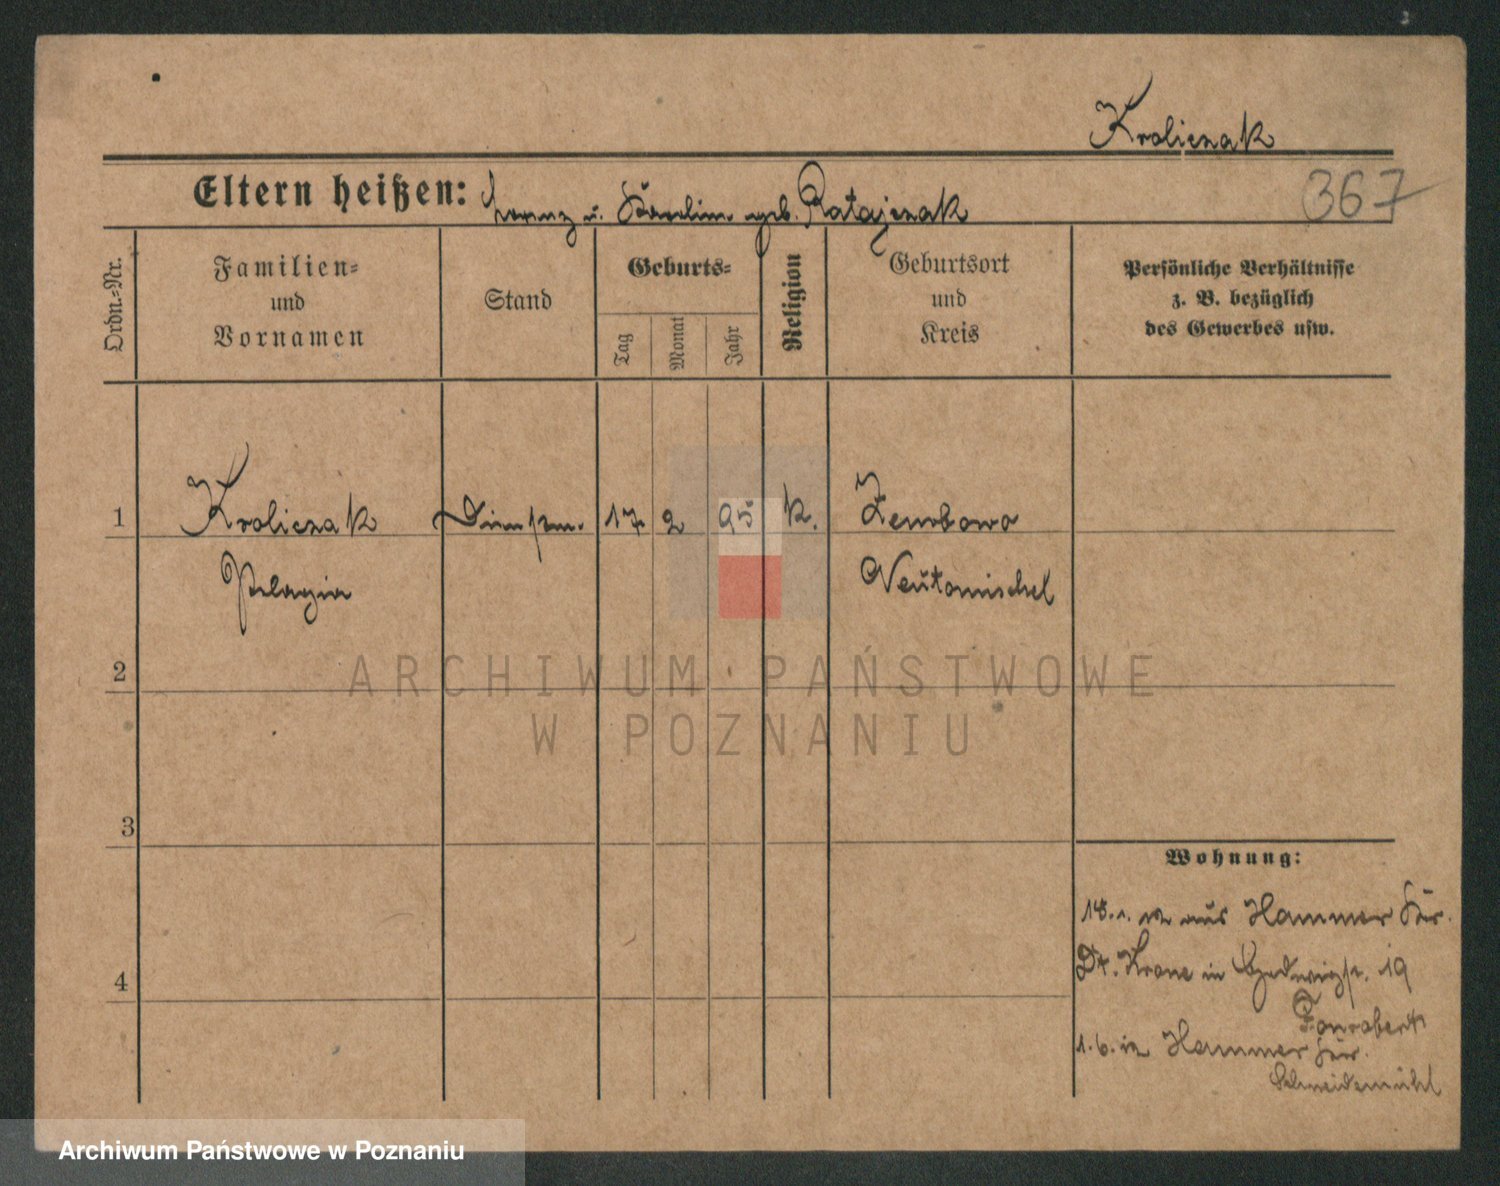 Kroliczak
Eltern heißen: Lorenz u. Karolina geb. Ratajczak
367
Ordn.-Nr.
Familien-
und
Vornamen
Stand
Geburts-
Tag
Monat
Jahr
Religion
Geburtsort
und
Kreis
Persönliche Verhältnisse
z. B. bezüglich
des Gewerbes usw.
1 Kroliczak 17 2 95 k. Zembowo
Pelagia Neutomischel
2
ARCHIWUM PAŃSTWOWE
W POZNANIU
3
Wohnung:
18.1. aus Hammer Kr.
4
Dt. Krone in Hedwigstr. 19
1.6. in Hammer Kr.
Schneidemühl
Archiwum Państwowe w Poznaniu